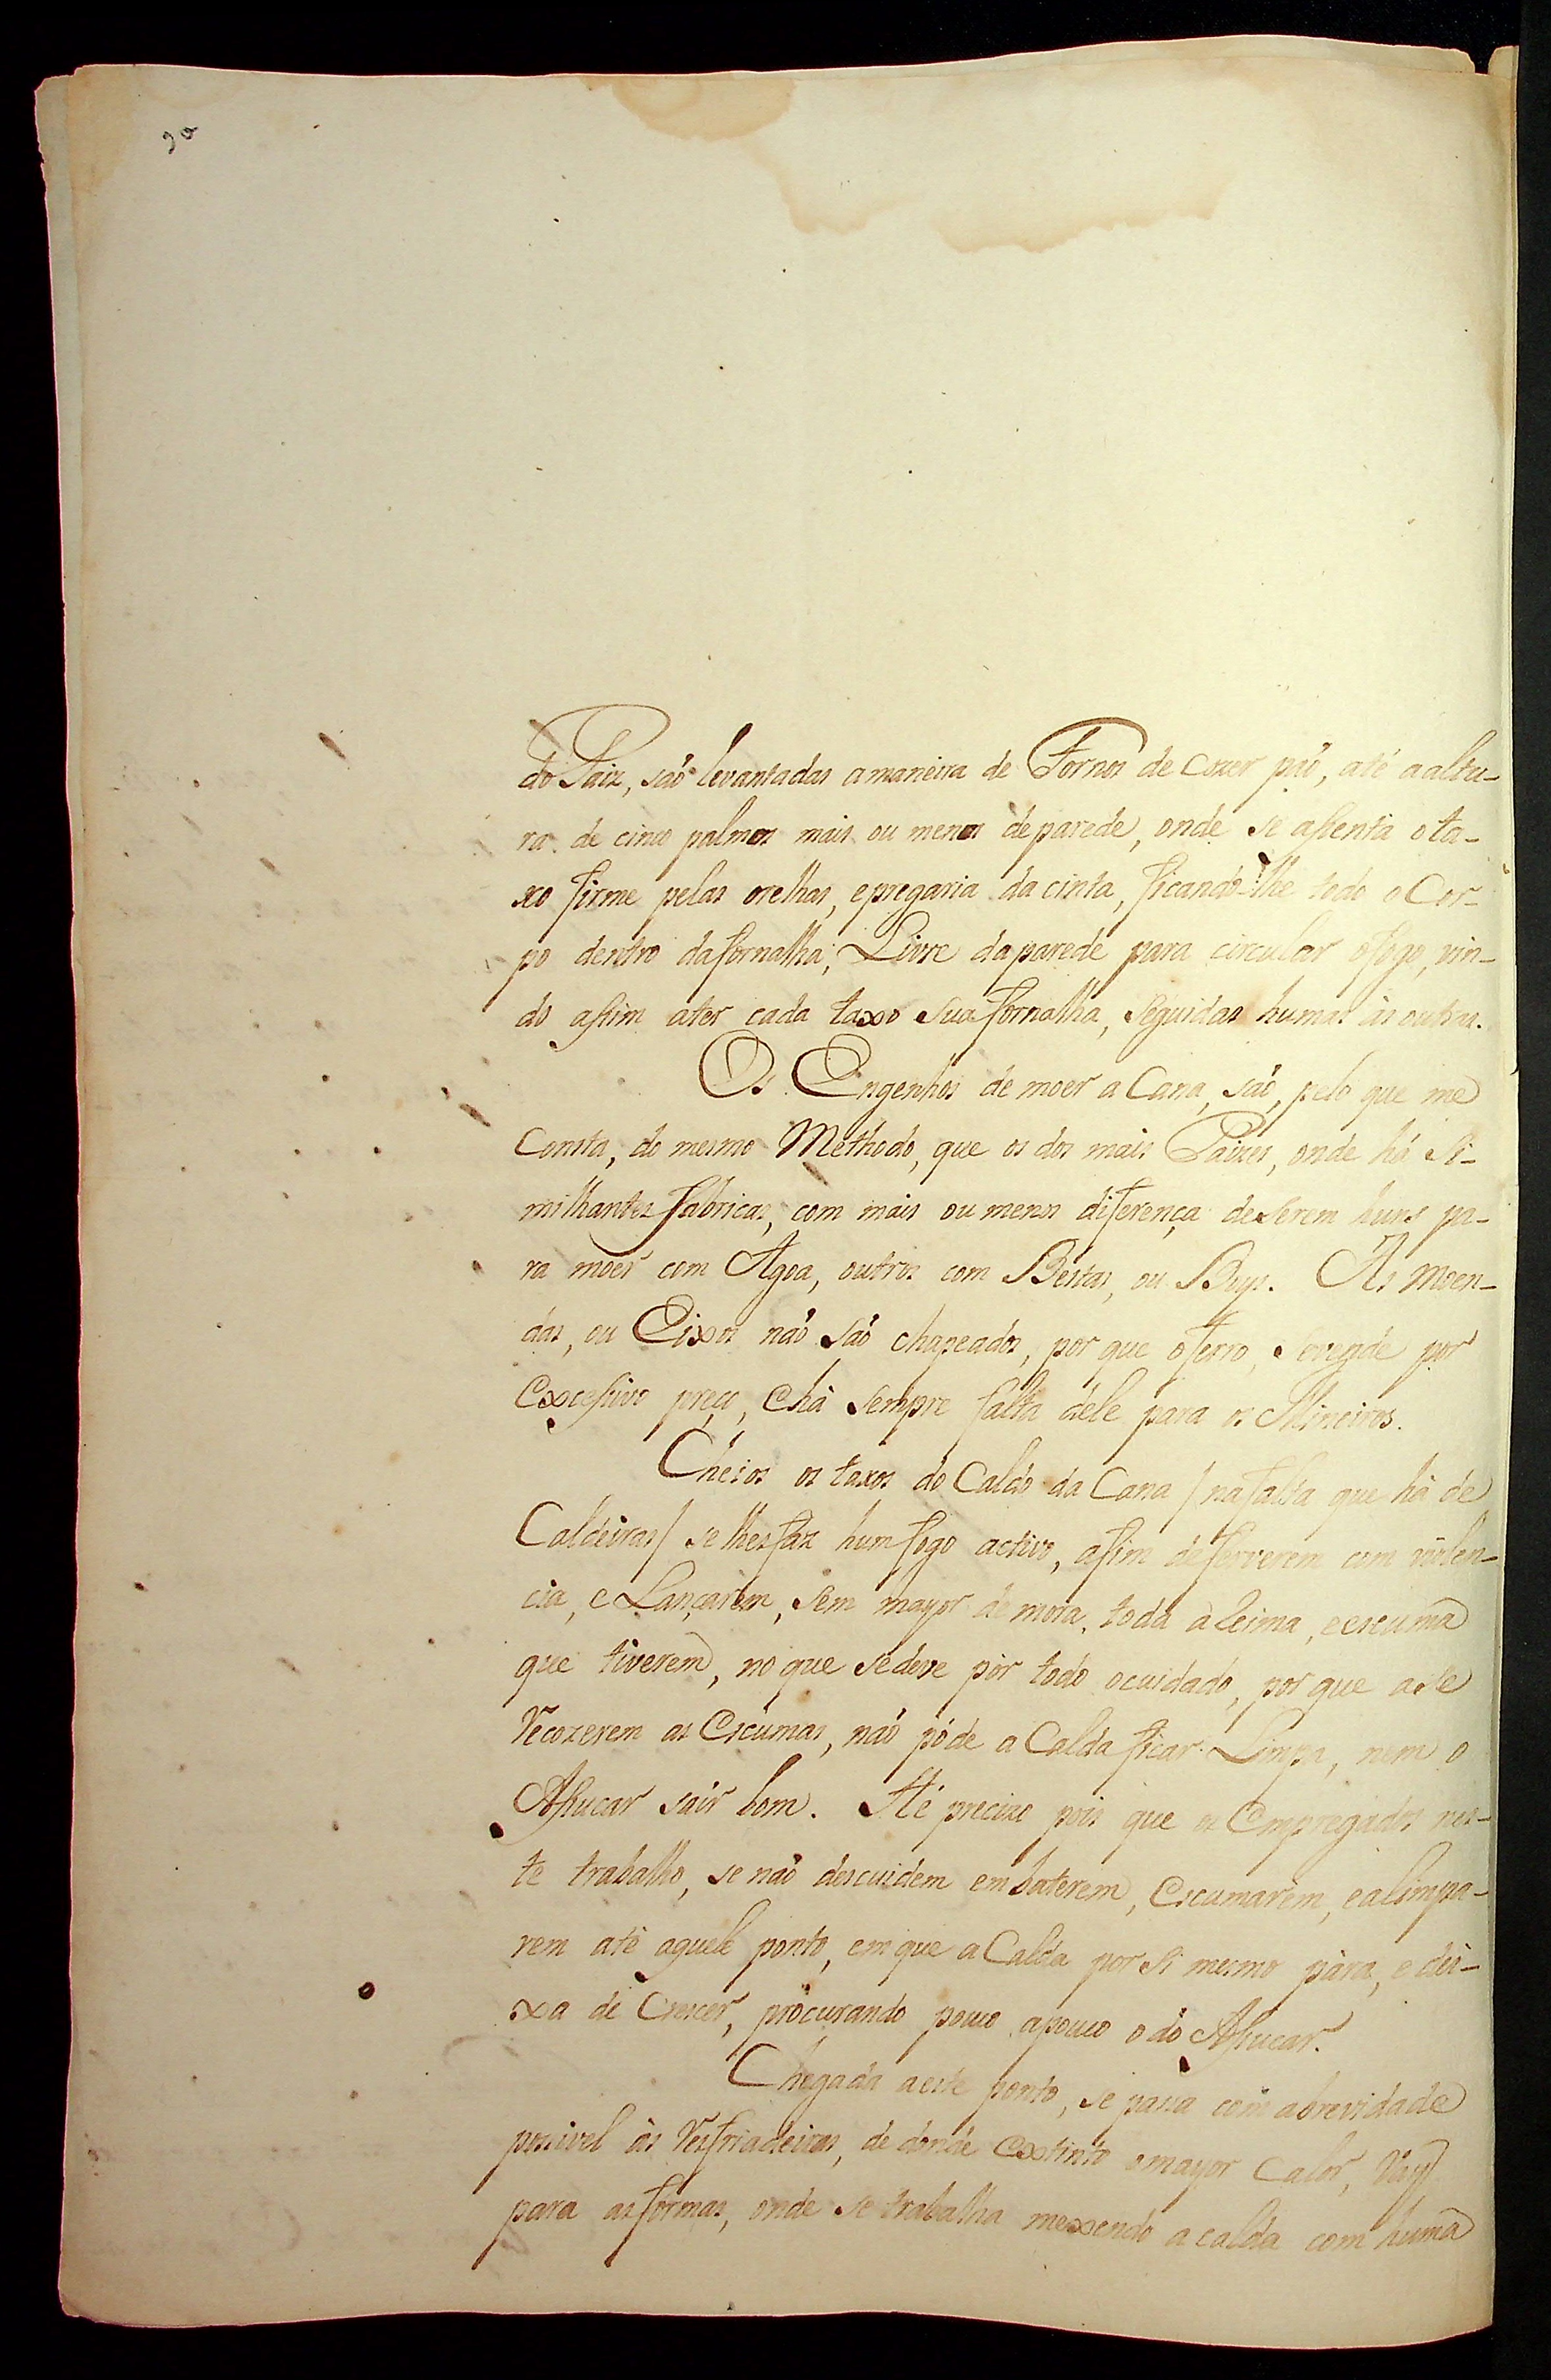 90
do Paiz, são levantadas a maneira de Fornos de cozer pão, até a altu-
ra de cinco palmos mais ou menos de parede, onde se assenta o ta-
xo firme pelas orelhas, e pregaria da cinta, ficando-lhe todo o Cor-
po dentro da fornalha, Livre da parede para circular o fogo, vin-
do assim a ter cada taxo sua fornalha, seguidas humas às outras.
Os Engenhos de moer a Cana, são, pelo que me
Consta, do mesmo Methodo, que os dos mais Paizes, onde há Si-
milhantes fabricas, com mais ou menos diferença de serem huns pa-
ra moer com Agoa, outros com Bestas, ou Boys. As moen-
das, ou Eixos não são chapeados, por que o ferro, se vende por
Excessivo preço, e hà sempre falta dele para os Mineiros.
Cheios os taxos do Caldo da Cana / na falta que hà de
Caldeiras / se lhes faz hum fogo activo, afim de ferverem com violen-
cia, e Lançarem, sem mayor demora, toda a Leima, e escuma
que tiverem, no que se deve pòr todo o cuidado, por que a se
recozerem as Escumas, não póde a Calda ficar Limpa, nem o
Assucar sair bom. Hé precizo pois que os Empregados nes-
te trabalho, se não descuidem em baterem, Escumarem, e alimpa-
rem até aquele ponto, em que a Calda por si mesmo pàra, e dei-
xa de Crescer, procurando pouco a pouco o do Assucar.
Chegada a este ponto, se passa com a brevidade
possivel às resfriadeiras, de donde Extinto o mayor Calor, Vay
para as fórmas, onde se trabalha mexendo a calda com huma